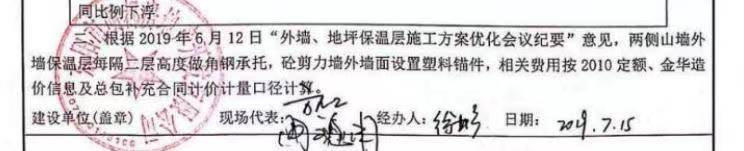 同比例下浮。
三、根据2019年6月12日“外墙、地坪保温层施工方案优化会议纪要”意见，两侧山墙外
墙保温层每隔二层高度做角钢承托，砼剪力墙外墙面设置塑料锚件，相关费用按2010定额、金华造
价信息及总包补充合同计价计量口径计算。
建设单位(盖章) 现场代表: 经办人: 日期: 2019.7.15